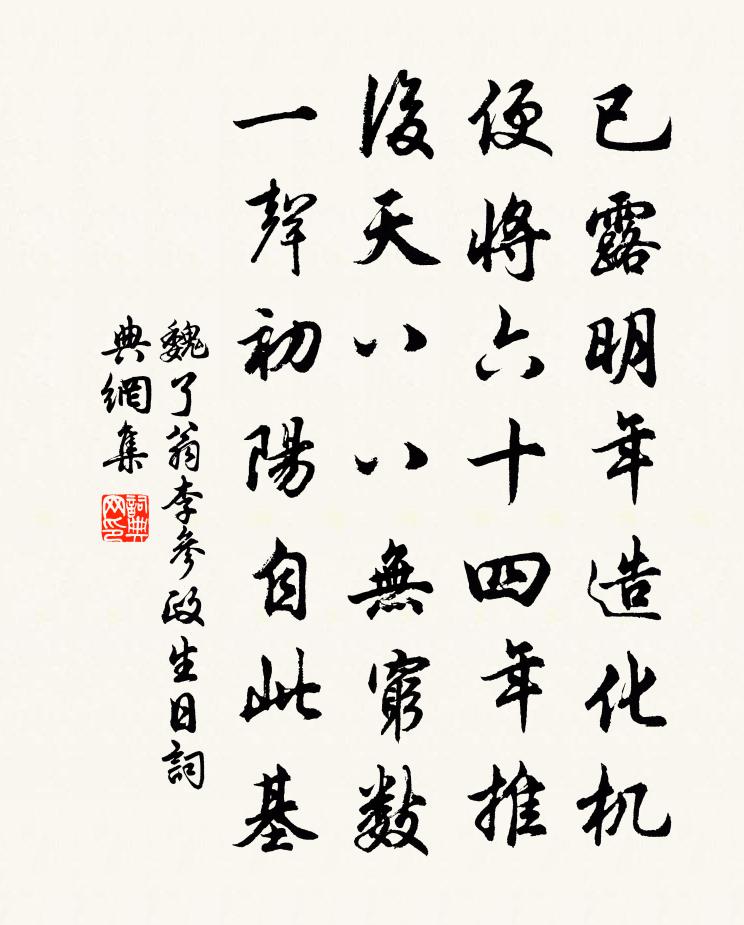 已露明年造化机
便將六十四年推
後天八八無窮數
一聲初陽自此基
魏了翁李參政生日詞
典網集
詞典
网印